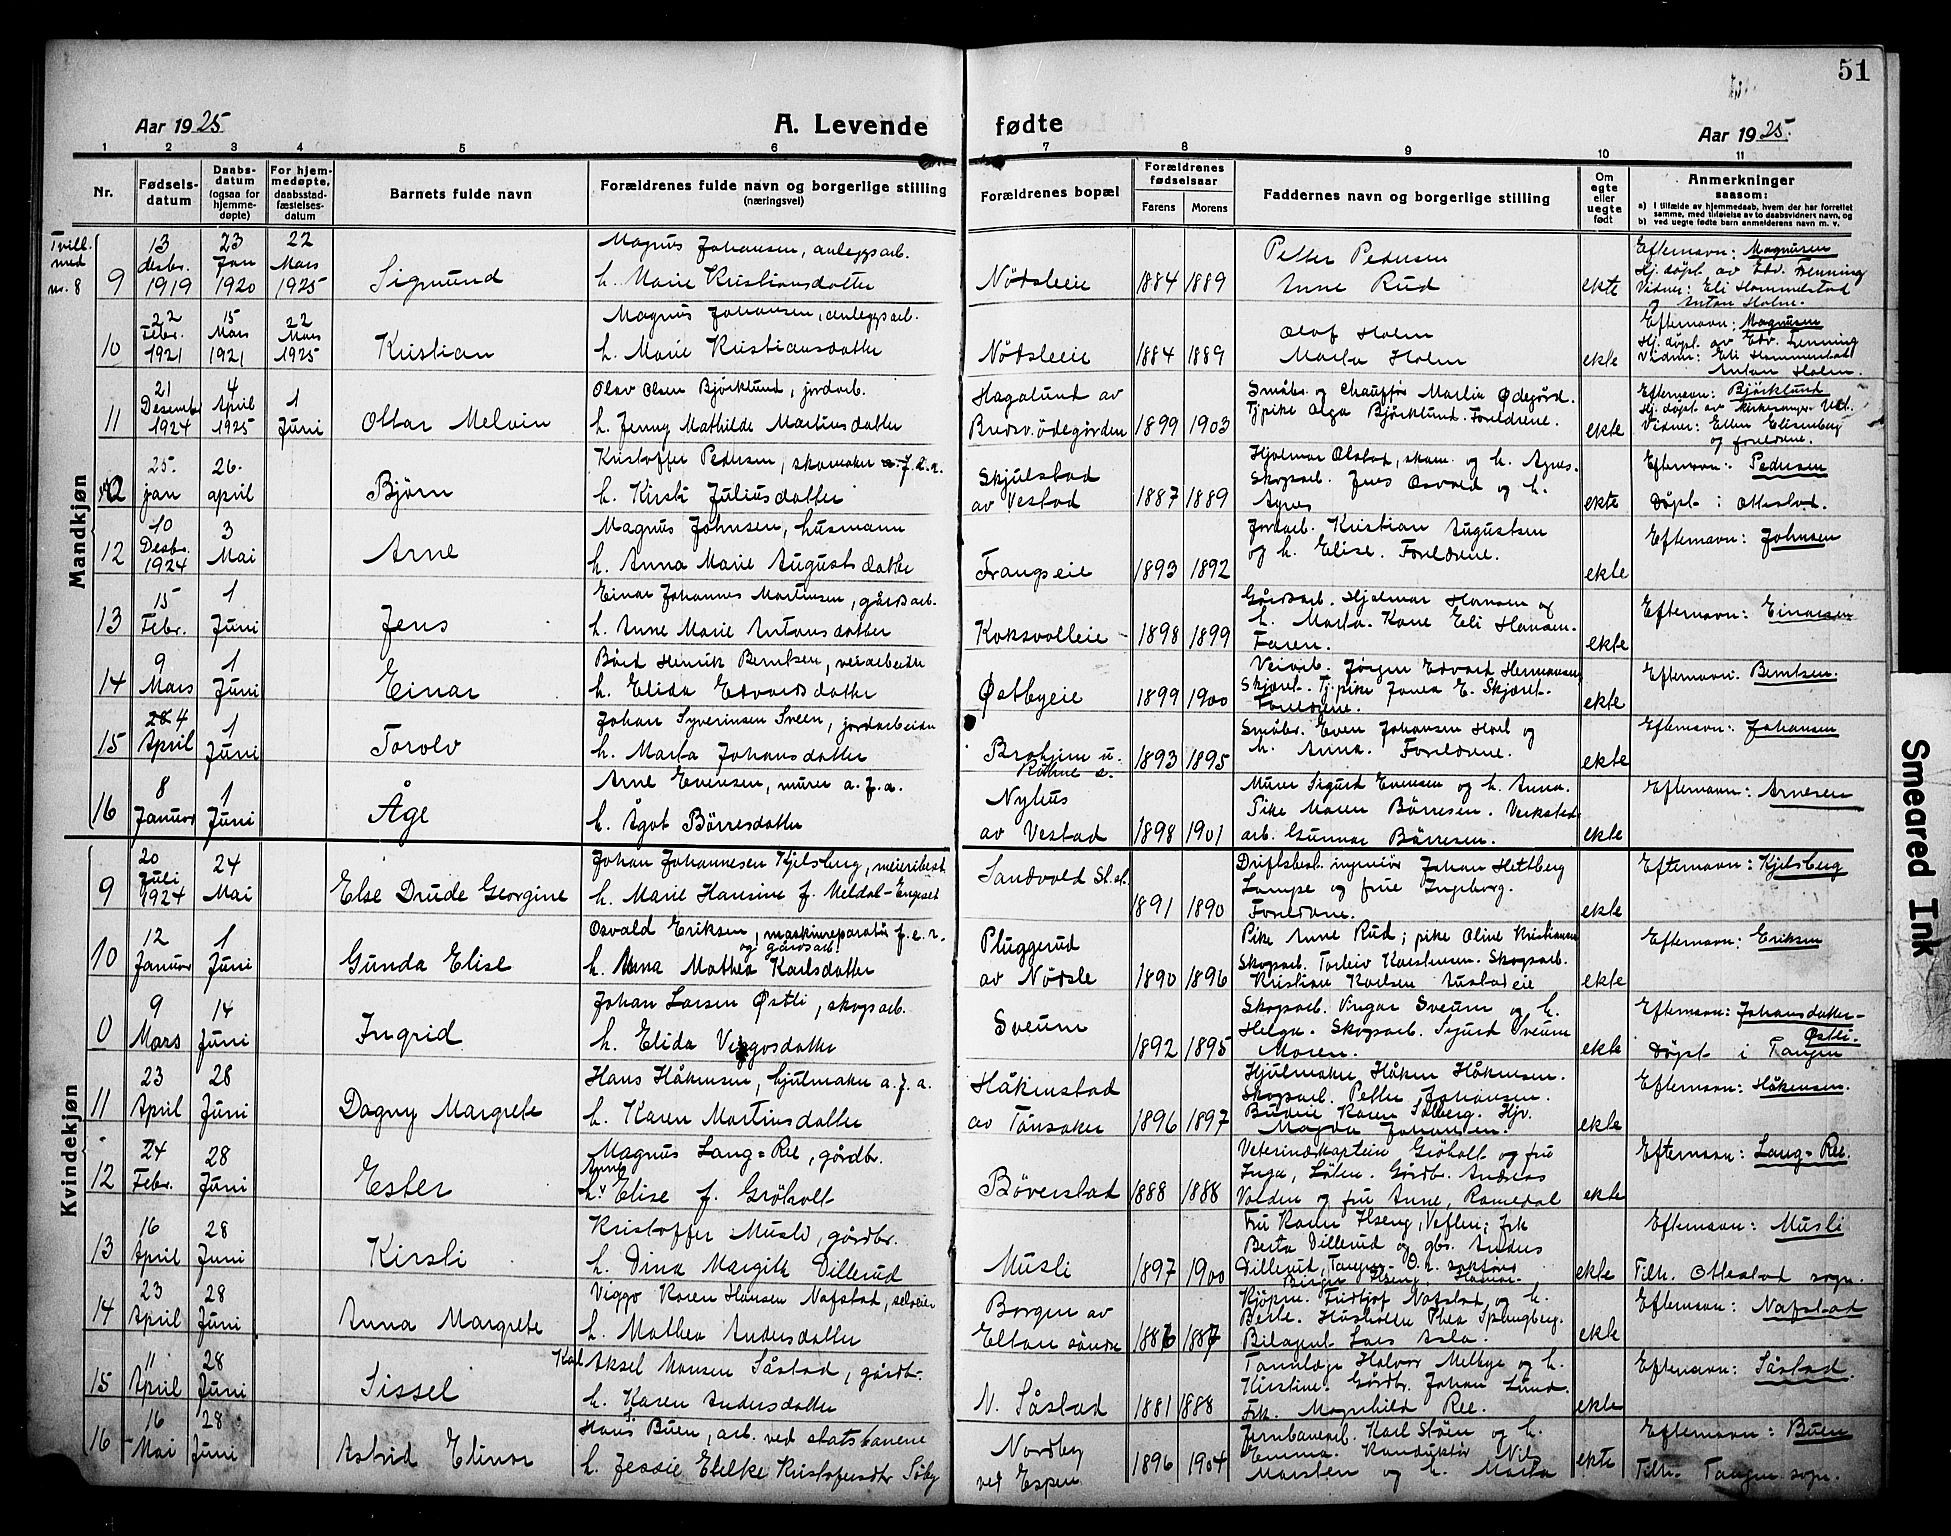 51
Aar 1925
A. Levende fødte
Aar 1925.
1 2 3 4 5 6 7 8 9 10 11
Nr.
Fødsels-
datum
Daabs-
datum
(ogsaa for
hjemme-
døpte)
For hjem-
medøpte,
daabsstad-
fæstelses-
datum
Barnets fulde navn
Forældrenes fulde navn og borgerlige stilling
(næringsvei)
Forældrenes bopæl
Forældrenes
fødselsaar
Farens Morens
Faddernes navn og borgerlige stilling
Om
egte
eller
uegte
født
Anmerkninger
saasom:
a) I tilfælde av hjemmedaab, hvem der har forrettet
samme, med tilføielse av to daabsvidners navn, og
b) ved uegte fødte barn anmelderens navn m. v.
Mandkjøn
Tvill.
med
nr. 8
9
13
desbr.
1919
23
Jan
1920
22
Mars
1925
Sigmund
Magnus Johansen, anleggsarb.
h. Marie Kristiansdatter
Nødsleie
1884 1889
Petter Pedersen
Anne Rud
ekte
Efternavn: Magnusen
Hj.døpt av Edv. Fenning
Vidner: Eli Hommerstad
og Anton Holm.
10
22
Febr.
1921
15
Mars
1921
22
Mars
1925
Kristian
Magnus Johansen, anleggsarb.
h. Marie Kristiansdatter
Nødsleie
1884 1889
Olaf Holm
Marta Holm
ekte
Efternavn: Magnusen
Hj.døpt av Edv. Fenning
Vidner: Eli Hommerstad
Anton Holm.
11
21
Desember
1924
4
April
1925
1
Juni
Ottar Melvin
Olav Olsen Bjørklund, jordarb.
h. Jenny Mathilde Martinsdatter
Hagalund av
Bredsv.ødegården
1899 1903
Småbr. og Chauffør Martin Ødegård.
Tj.pike Olga Bjørklund. Foreldrene.
ekte
Efternavn: Bjørklund
Hj.døpt av kirkesanger
Vidner: Ellen Elisenberg
og foreldrene.
25.
jan
26.
april
Bjørn
Kristoffer Pedersen, skomaker
h. Kirsti Juliusdatter
Skjulstad
av Vestad
1887 1889
Hjalmar Olstad, skom. og h. Agnes.
Skogsarb. Jens Osvald og h.
Agnes
ekte
Efternavn: Pedersen
Døpt i Ottestad.
12
10
Desbr.
1924
3
Mai
Arne
Magnus Johnsen, husmann
h. Anna Marie Augustsdatter
Frangseie
1893 1892
Jordarb. Kristian Augustsen
og h. Elise. Foreldrene.
ekte
Efternavn: Johnsen
13
15
Febr.
1
Juni
Jens
Einar Johannes Martinsen, gårdsarb.
h. Anne Marie Antonsdatter
Koksvolleie
1898 1899
Gårdsarb. Hjalmar Hansen og
h. Marta. Kone Eli Hansen.
Faren.
ekte
Efternavn: Einarsen
14
9
Mars
1
Juni
Einar
Bård Henrik Berntsen, veiarbeider
h. Elida Edvardsdatter
Østbyeie
1899 1900
Veiarb. Jørgen Edvard Hermansen
Skjæret. Tj.pike Jonea E. Skjæret.
Foreldrene.
ekte
Efternavn: Berntsen.
15
4
April
1
Juni
Torolv
Johan Syverinsen Sveen, jordarbeider
h. Marta Johansdatter
1893 1895
Småbr. Even Johansen Hoel og
h. Anna. Foreldrene.
ekte
Efternavn: Johansen
16
8
Januar
1
Juni
Åge
Arne Evensen, murer a.f.a.
h. Ågot Børresdatter
Nyhus
av Vestad
1898 1901
Murer Sigurd Evensen og h. Anna.
Pike Maren Børresen. Verksted-
arb. Gunnar Børresen.
ekte
Efternavn: Arnesen
Kvindekjøn
9
20
Juli
1924
24
Mai
Else Drude Georgine
Johan Johannesen Kjelsberg, meieribest.
h. Marie Hansine f. Meldal-Engeset
Sandvold St.st.
1891 1890
Driftsbest. ingeniør Johan Hettberg
Lampe og frue Ingeborg.
Foreldrene.
ekte
Efternavn: Kjelsberg
10
12
Januar
1
Juni
Gunda Elise
Osvald Eriksen, maskinreparatør f.e.r.
og gårdsarb.
h. Anna Mathea Karlsdatter
Pluggerud
av Nødsle
1890 1896
Pike Anne Rud; pike Olive Kristiansen
Skogsarb. Torleiv Karlsensen. Skogsarb.
Kristian Karlsen
ekte
Efternavn: Eriksen
0
9
Mars
14
Juni
Ingrid
Johan Larsen Østli, skogsarb.
h. Elida Viggosdatter
Sveum
1892 1895
Skogsarb. Yngar Sveum og h.
Helga. Skogsarb. Sjurd Sveum
Moren.
ekte
Efternavn: Johansdatter-
Østli.
Døpt i Tangen
11
23
April
28
Juni
Dagny Margrete
Hans Håkensen, hjulmaker a.f.a.
h. Karen Martinsdatter
Håkenstad
av Tønsaker
1896 1897
Hjulmaker Håken Håkensen.
Skogsarb. Petter Johansen.
Budeie Karen Solberg. Hjv.
Magda Johansen.
ekte
Efternavn: Håkensen.
12
24
Febr.
28
Juni
Ester
Magnus Lang-Ree, gårdbr.
Anna
h. Elise f. Grøholt
Bøverstad
1888 1888
Veterinærkaptein Grøholt og fru
Inga, Løten. Gårdbr. Andreas
Volden og fru Anne, Romedal
ekte
Efternavn: Lang-Ree.
13
16
April
28
Juni
Kirsti
Kristoffer Musli, gårdbr.
h. Dina Margith Dillerud
Musli
1897 1900
Fru Karen Ilseng, Vefsen; frk
Berta Dillerud og gbr. Anders
Dillerud, Tangen.
Birger Ilseng, Hamar.
ekte
Efternavn: Musli
Tilh. Ottestad sogn.
14
23
April
28
Juni
Anna Margrete
Viggo Karen Hansen Nafstad, selveier
h. Mathea Andersdatter
Borgen av
Elton søndre
1886 1887
Kjøpm. Fridtjof Nafstad og h.
Berte. Husholder. Thea Spangberg.
Bilagent Lars Asla.
ekte
Efternavn: Nafstad
15
11
April
28
Juni
Sissel
Karl Aksel Hansen Såstad, gårdbr.
h. Karen Andersdatter
N. Såstad
1881 1888
Tannlæge Halvor Melbye og h.
Kirstine. Gårdbr. Johan Lund.
Frk. Magnhild Ree.
ekte
Efternavn: Såstad.
16
16
Mai
28
Juni
Astrid Elinor
Hans Buen, arb. ved statsbanene
h. Jessie Elilke Kristofersdtr Søby
Nordby
ved Espen
1896 1904
Jernbanearb. Karl Støen og h.
Emma. Konduktør Nils
Marsten og h. Marta
ekte
Efternavn: Buen
Tilh. Tangen sogn.
Smeared Ink